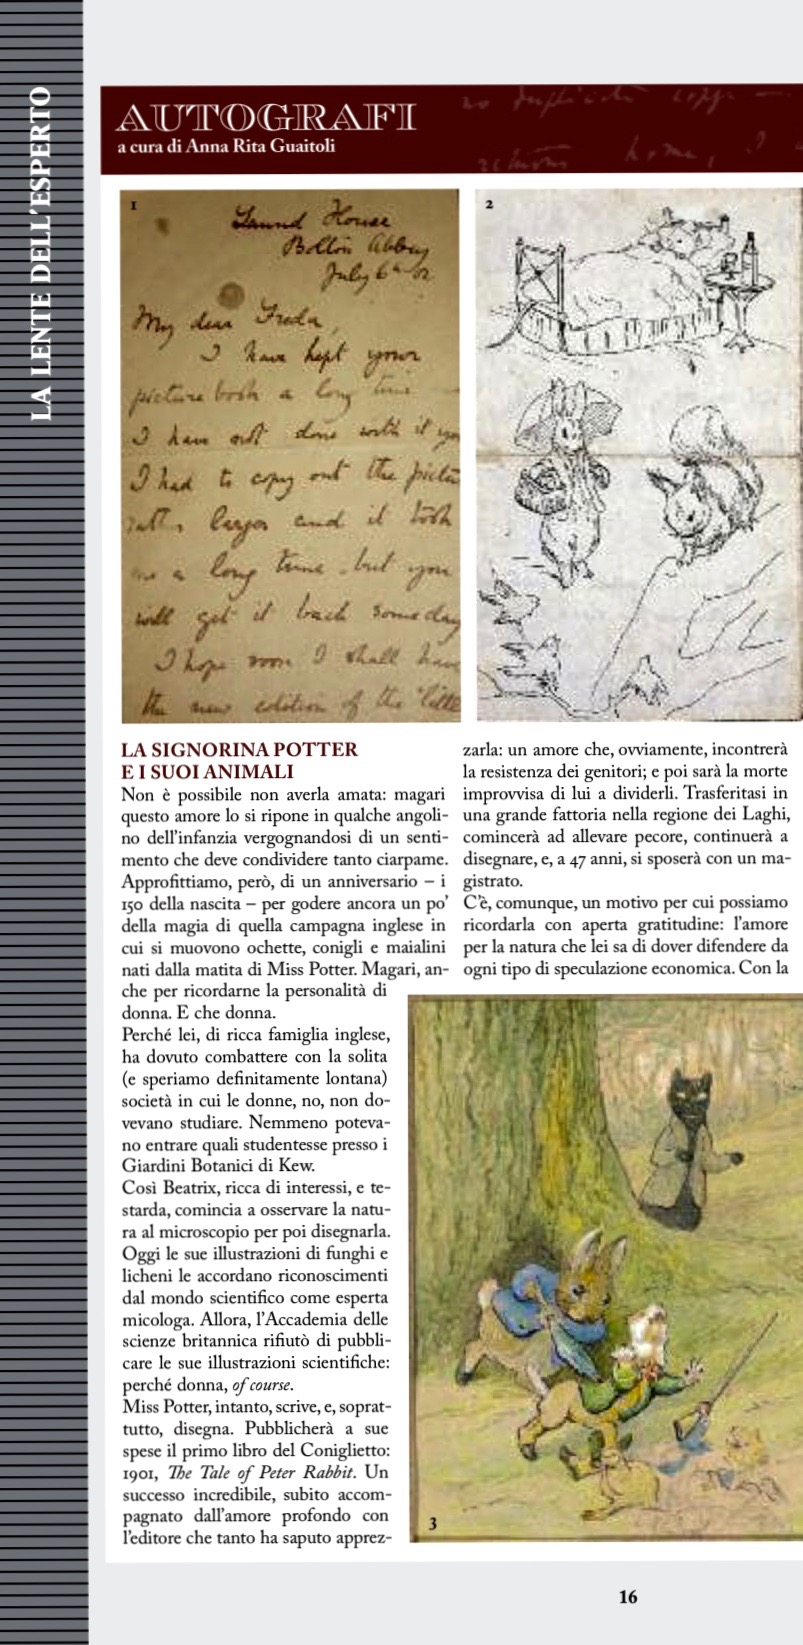 LA LENTE DELL'ESPERTO
AUTOGRAFI
a cura di Anna Rita Guaitoli
1
House
Bolton Abbey
July 6th 02
My dear Freda,
I have kept your
picture book a long time
I have not done with it
I had to copy out the
larger and it took
me a long time. but you
will get it back someday
I hope soon I shall have
the new edition of the
2
LA SIGNORINA POTTER
E I SUOI ANIMALI
Non è possibile non averla amata: magari
questo amore lo si ripone in qualche angoli-
no dell'infanzia vergognandosi di un senti-
mento che deve condividere tanto ciarpame.
Approfittiamo, però, di un anniversario – i
150 della nascita – per godere ancora un po'
della magia di quella campagna inglese in
cui si muovono ochette, conigli e maialini
nati dalla matita di Miss Potter. Magari, an-
che per ricordarne la personalità di
donna. E che donna.
Perché lei, di ricca famiglia inglese,
ha dovuto combattere con la solita
(e speriamo definitamente lontana)
società in cui le donne, no, non do-
vevano studiare. Nemmeno poteva-
no entrare quali studentesse presso i
Giardini Botanici di Kew.
Così Beatrix, ricca di interessi, e te-
starda, comincia a osservare la natu-
ra al microscopio per poi disegnarla.
Oggi le sue illustrazioni di funghi e
licheni le accordano riconoscimenti
dal mondo scientifico come esperta
micologa. Allora, l'Accademia delle
scienze britannica rifiutò di pubbli-
care le sue illustrazioni scientifiche:
perché donna, of course.
Miss Potter, intanto, scrive, e, soprat-
tutto, disegna. Pubblicherà a sue
spese il primo libro del Coniglietto:
1901, The Tale of Peter Rabbit. Un
successo incredibile, subito accom-
pagnato dall'amore profondo con
l'editore che tanto ha saputo apprez-
zarla: un amore che, ovviamente, incontrerà
la resistenza dei genitori; e poi sarà la morte
improvvisa di lui a dividerli. Trasferitasi in
una grande fattoria nella regione dei Laghi,
comincerà ad allevare pecore, continuerà a
disegnare, e, a 47 anni, si sposerà con un ma-
gistrato.
C'è, comunque, un motivo per cui possiamo
ricordarla con aperta gratitudine: l'amore
per la natura che lei sa di dover difendere da
ogni tipo di speculazione economica. Con la
3
16